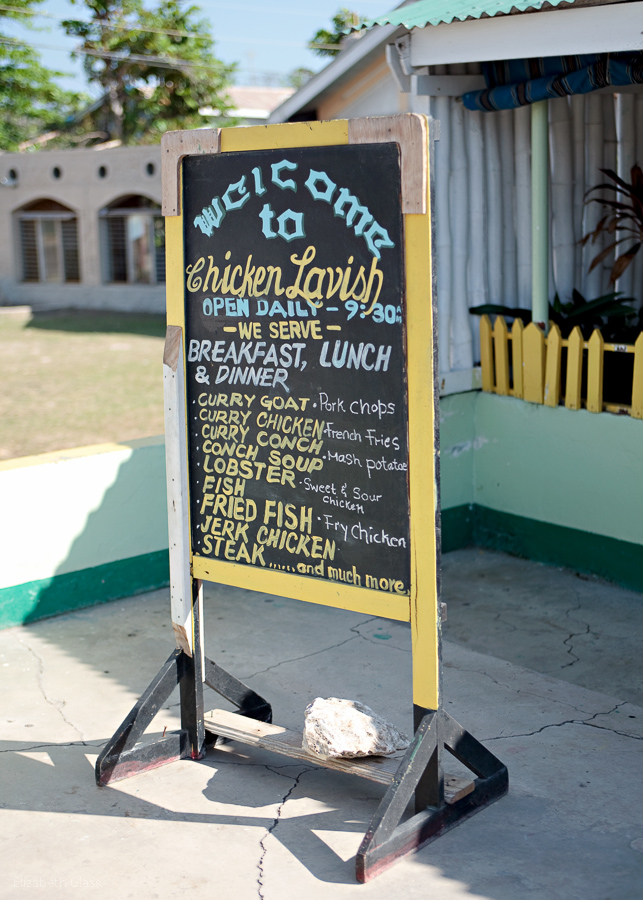 Welcome
to
Chicken Lavish
OPEN DAILY - 9:30
- WE SERVE -
BREAKFAST, LUNCH
& DINNER
• CURRY GOAT
• CURRY CHICKEN
• CURRY CONCH
• CONCH SOUP
• LOBSTER
• FISH
• FRIED FISH
• JERK CHICKEN
• STEAK ...... and much more
• Pork chops
• French Fries
• Mash potatoe
• Sweet & Sour
chicken
• Fry chicken